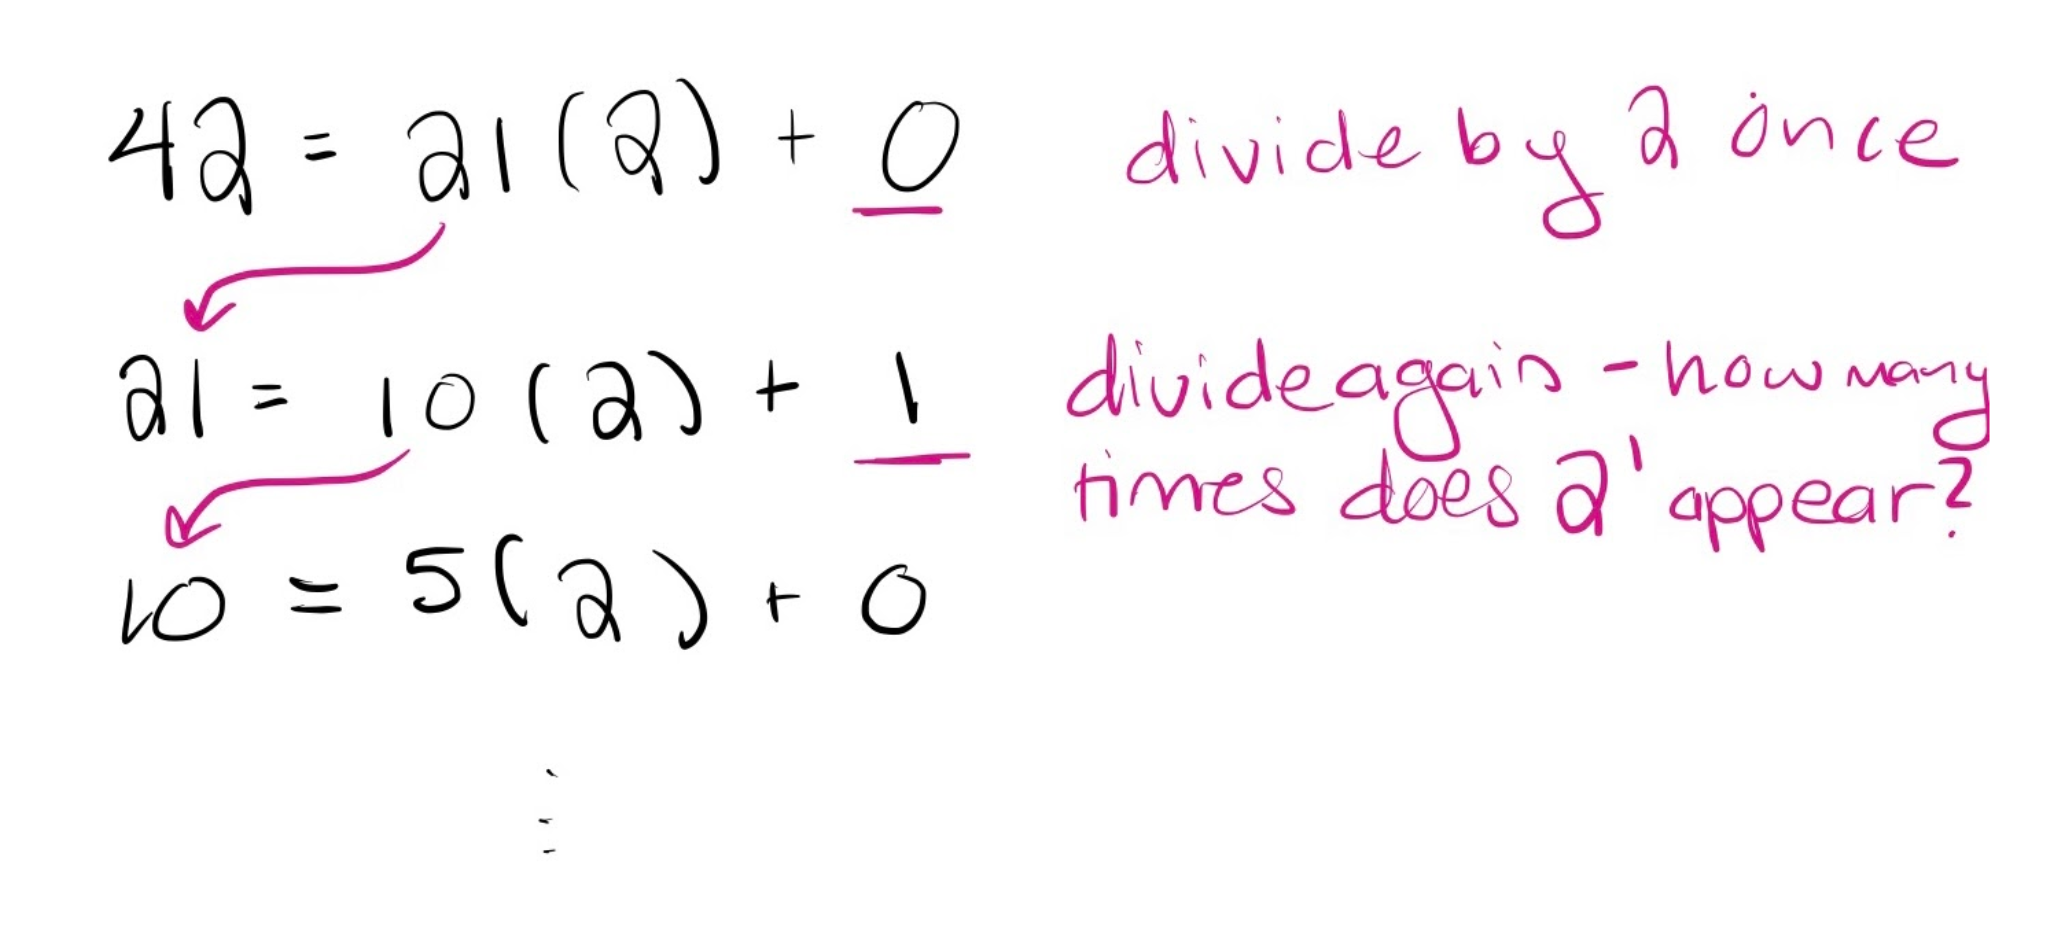 42 = 21(2) + 0 divide by 2 once
21 = 10(2) + 1 divide again - how many
times does 2¹ appear?
10 = 5(2) + 0
⋮